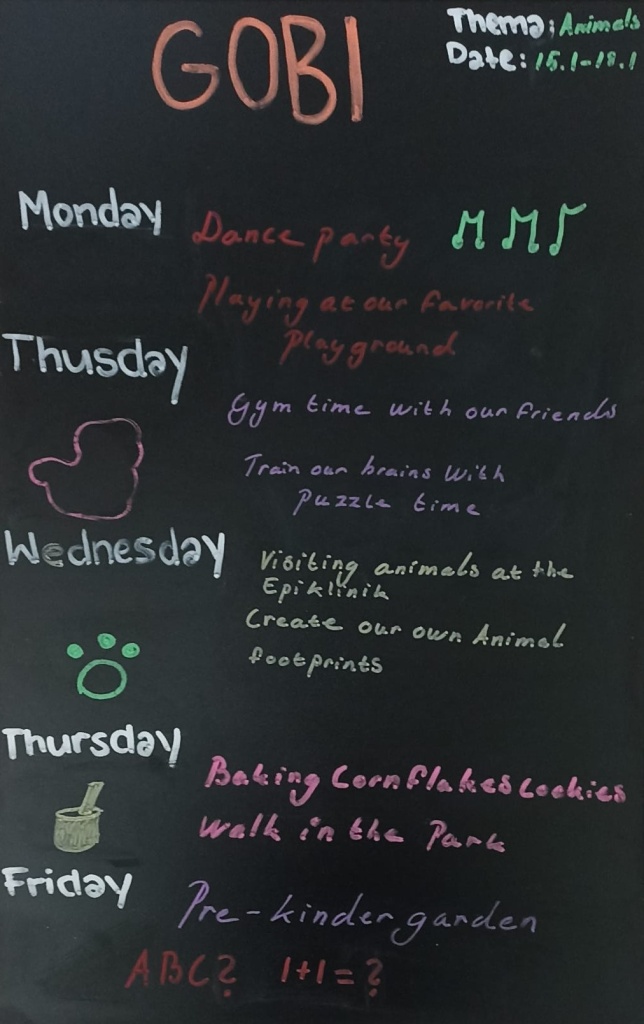 GOBI
Thema: Animals
Date: 15.1-18.1
Monday
Dance party
Playing at our favorite
playground
Thusday
Gym time with our friends
Train our brains with
puzzle time
Wednesday
Visiting animals at the
Epiklinik
Create our own Animal
footprints
Thursday
Baking Cornflakes Cookies
Walk in the Park
Friday
Pre-kindergarden
ABC? 1+1=?